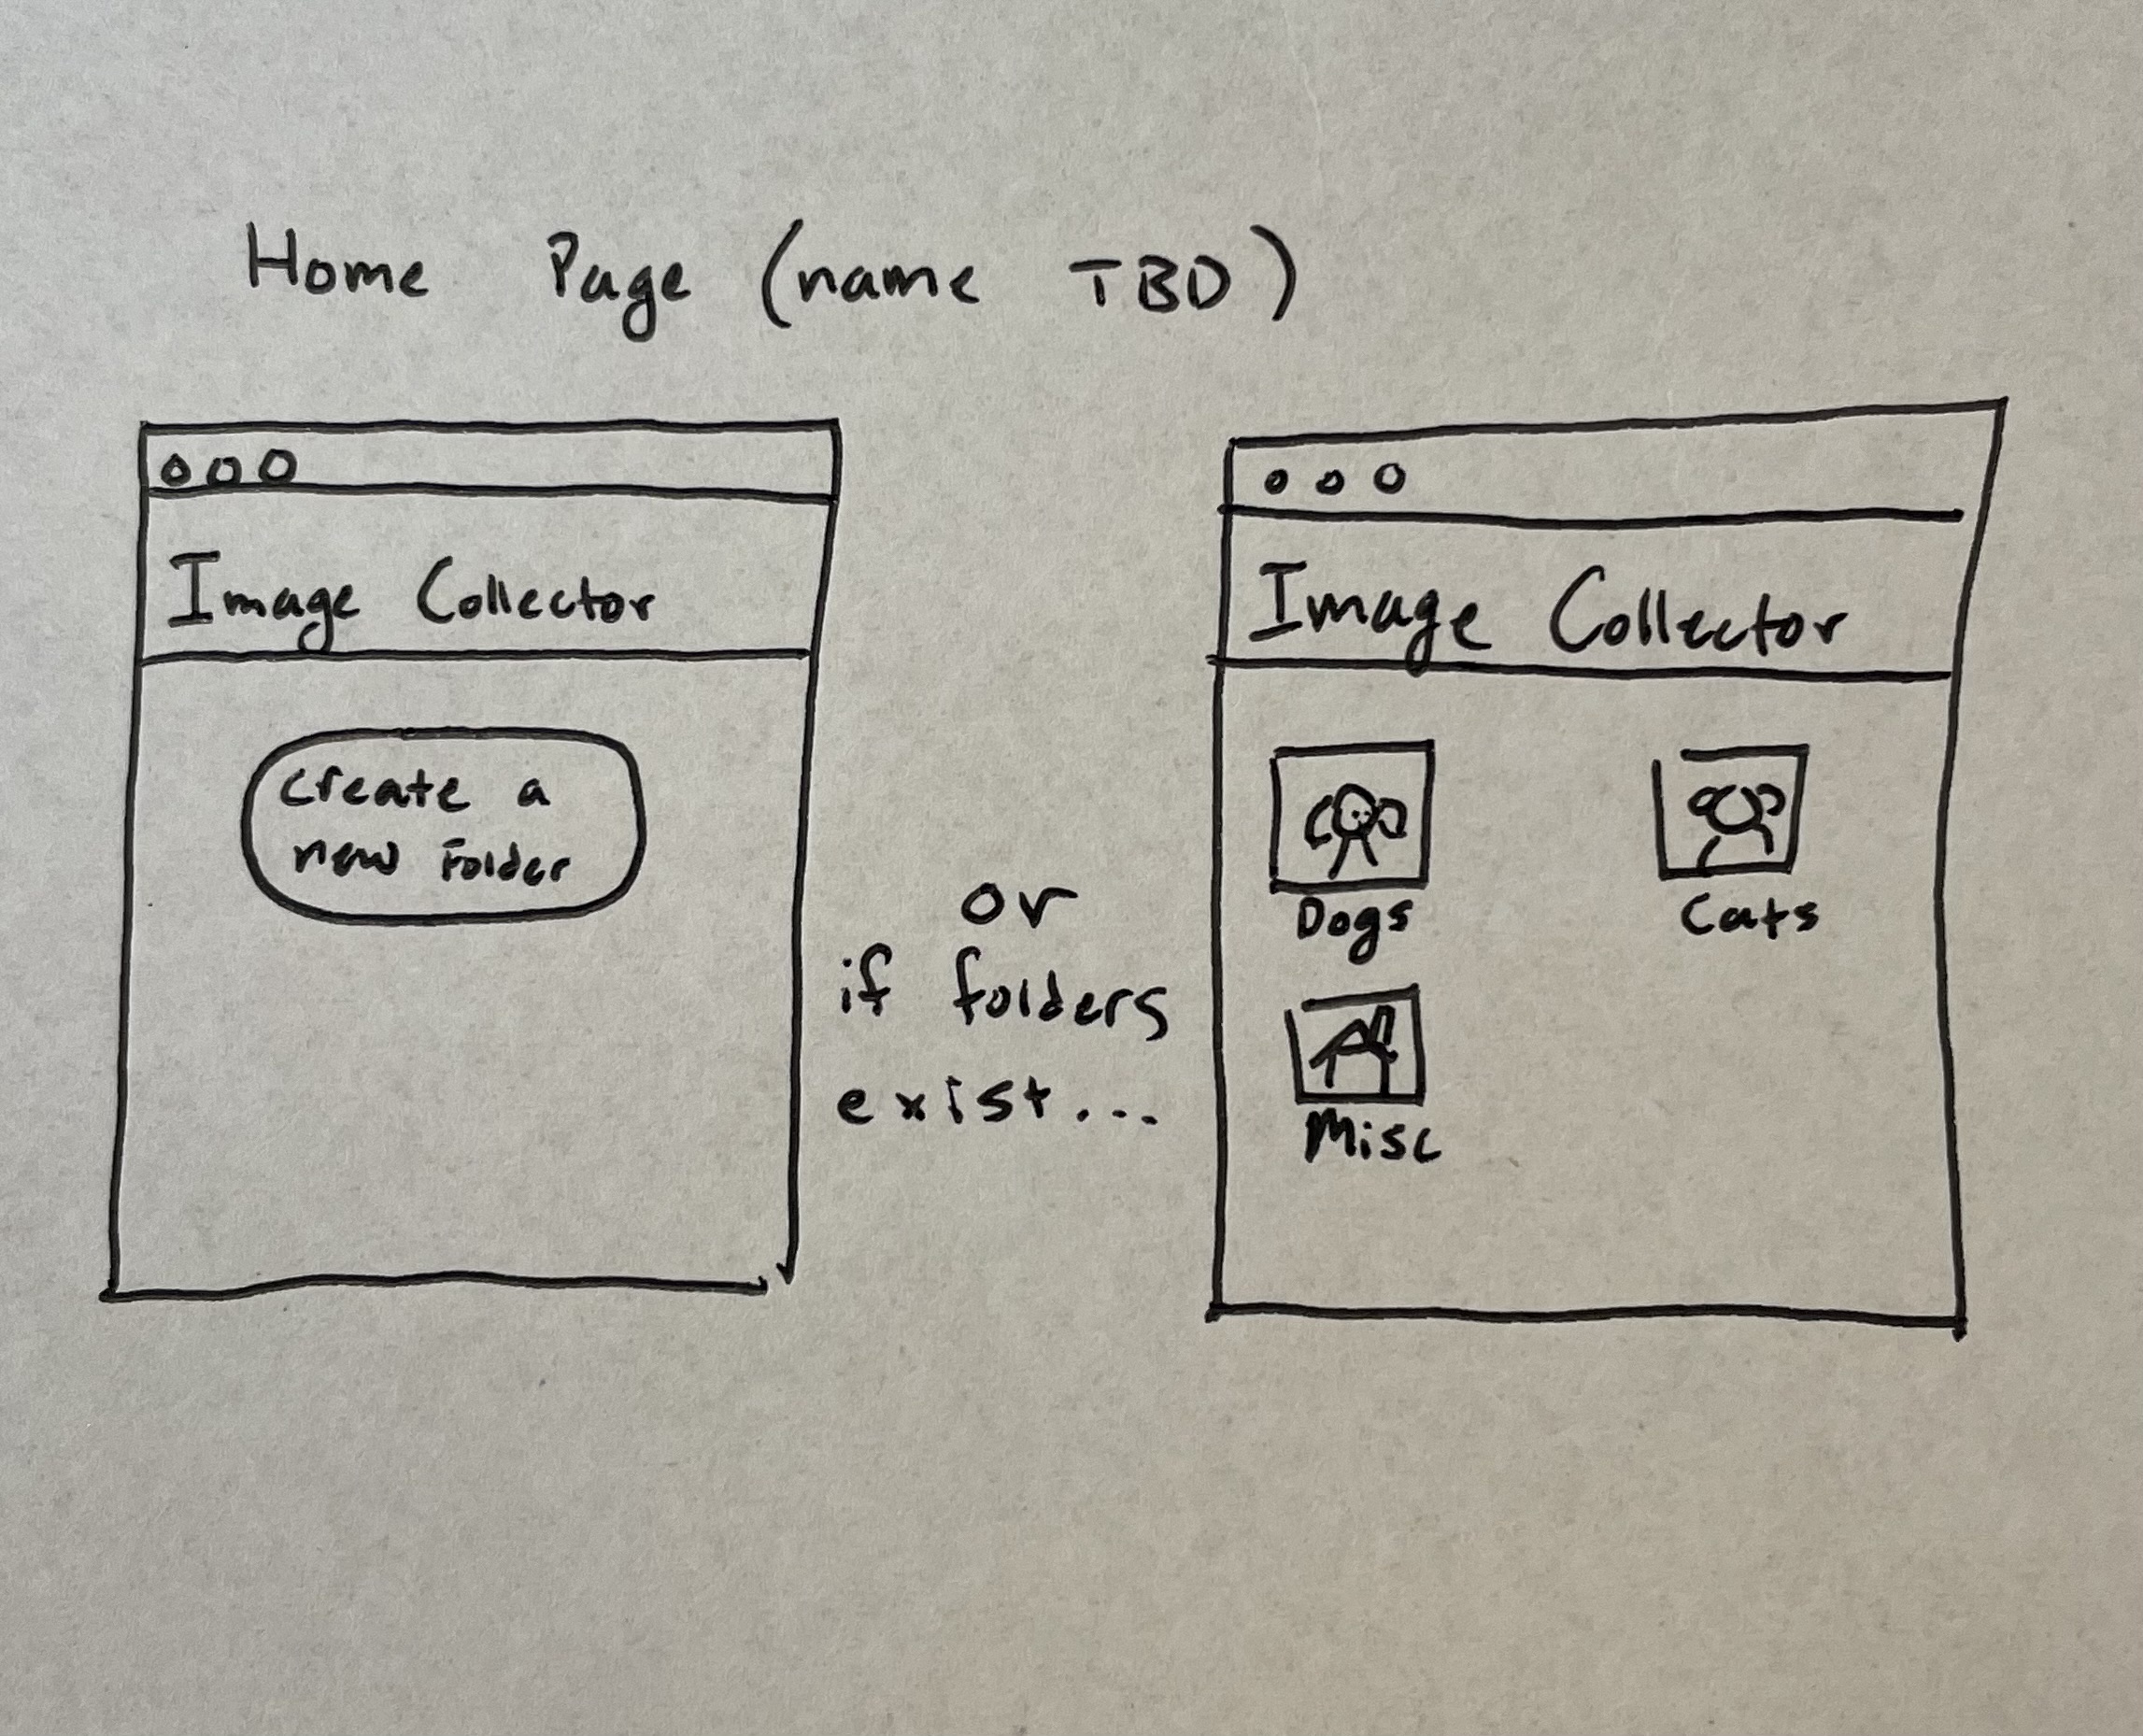 Home Page (name TBD)
Image Collector
Create a
new Folder
or
if folders
exist...
Image Collector
Dogs
Cats
Misc